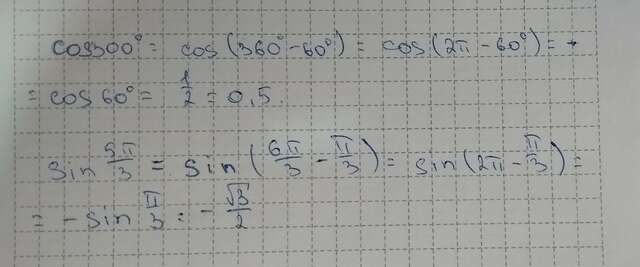 cos300° = cos(360°-60°) = cos(2π-60°) = +
= cos60° = 1/2 = 0,5.
sin 5π/3 = sin(6π/3 - π/3) = sin(2π - π/3) =
= -sin π/3 = -√3/2